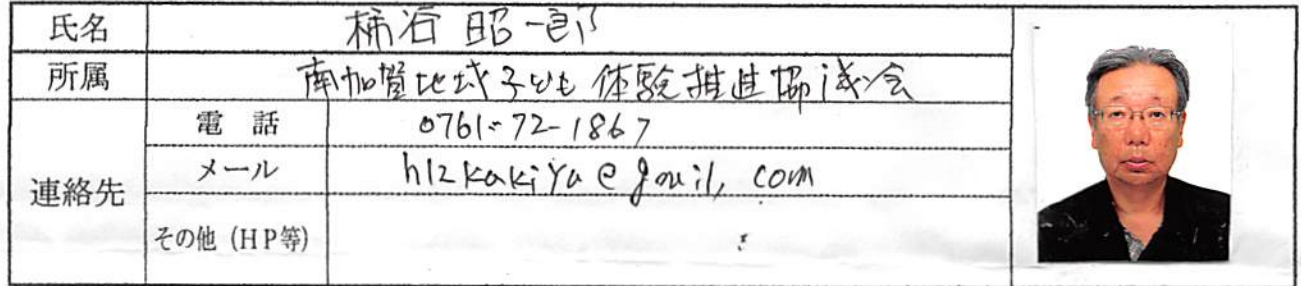 氏名 柿谷 昭一郎
所属 南加賀地域子ども体験推進協議会
連絡先
電話 0761-72-1867
メール h12kakiya@gmail.com
その他(HP等)